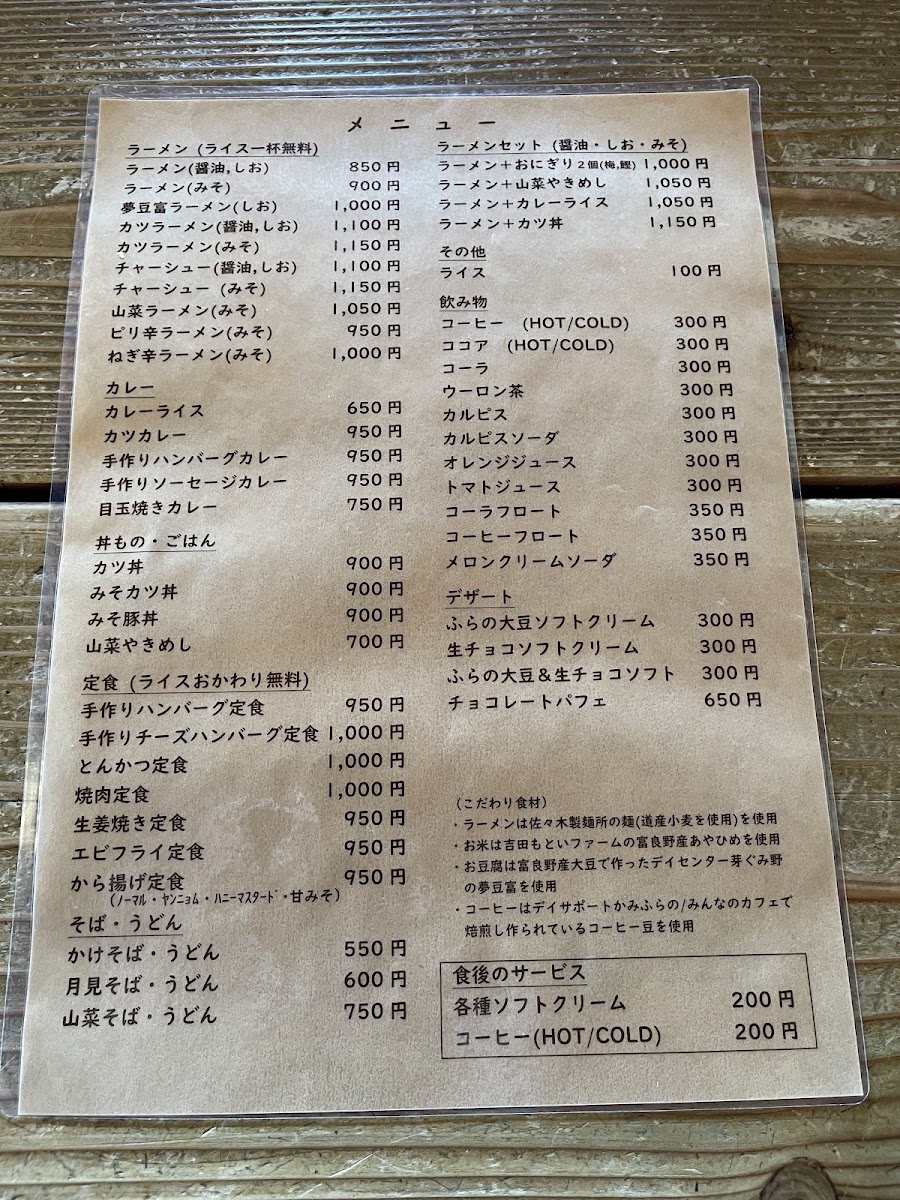 メニュー
ラーメン (ライス一杯無料)
ラーメン(醤油,しお) 850円
ラーメン(みそ) 900円
夢豆富ラーメン(しお) 1,000円
カツラーメン(醤油,しお) 1,100円
カツラーメン(みそ) 1,150円
チャーシュー(醤油,しお) 1,100円
チャーシュー (みそ) 1,150円
山菜ラーメン(みそ) 1,050円
ピリ辛ラーメン(みそ) 950円
ねぎ辛ラーメン(みそ) 1,000円
カレー
カレーライス 650円
カツカレー 950円
手作りハンバーグカレー 950円
手作りソーセージカレー 950円
目玉焼きカレー 750円
丼もの・ごはん
カツ丼 900円
みそカツ丼 900円
みそ豚丼 900円
山菜やきめし 700円
定食 (ライスおかわり無料)
手作りハンバーグ定食 950円
手作りチーズハンバーグ定食 1,000円
とんかつ定食 1,000円
焼肉定食 1,000円
生姜焼き定食 950円
エビフライ定食 950円
から揚げ定食 950円
(ノーマル・ヤンニョム・ハニーマスタード・甘みそ)
そば・うどん
かけそば・うどん 550円
月見そば・うどん 600円
山菜そば・うどん 750円
ラーメンセット (醤油・しお・みそ)
ラーメン+おにぎり2個(梅,鰹) 1,000円
ラーメン+山菜やきめし 1,050円
ラーメン+カレーライス 1,050円
ラーメン+カツ丼 1,150円
その他
ライス 100円
飲み物
コーヒー (HOT/COLD) 300円
ココア (HOT/COLD) 300円
コーラ 300円
ウーロン茶 300円
カルピス 300円
カルピスソーダ 300円
オレンジジュース 300円
トマトジュース 300円
コーラフロート 350円
コーヒーフロート 350円
メロンクリームソーダ 350円
デザート
ふらの大豆ソフトクリーム 300円
生チョコソフトクリーム 300円
ふらの大豆&生チョコソフト 300円
チョコレートパフェ 650円
(こだわり食材)
・ラーメンは佐々木製麺所の麺(道産小麦を使用)を使用
・お米は吉田もといファームの富良野産あやひめを使用
・お豆腐は富良野産大豆で作ったデイセンター芽ぐみ野
の夢豆富を使用
・コーヒーはデイサポートかみふらの/みんなのカフェで
焙煎し作られているコーヒー豆を使用
食後のサービス
各種ソフトクリーム 200円
コーヒー(HOT/COLD) 200円